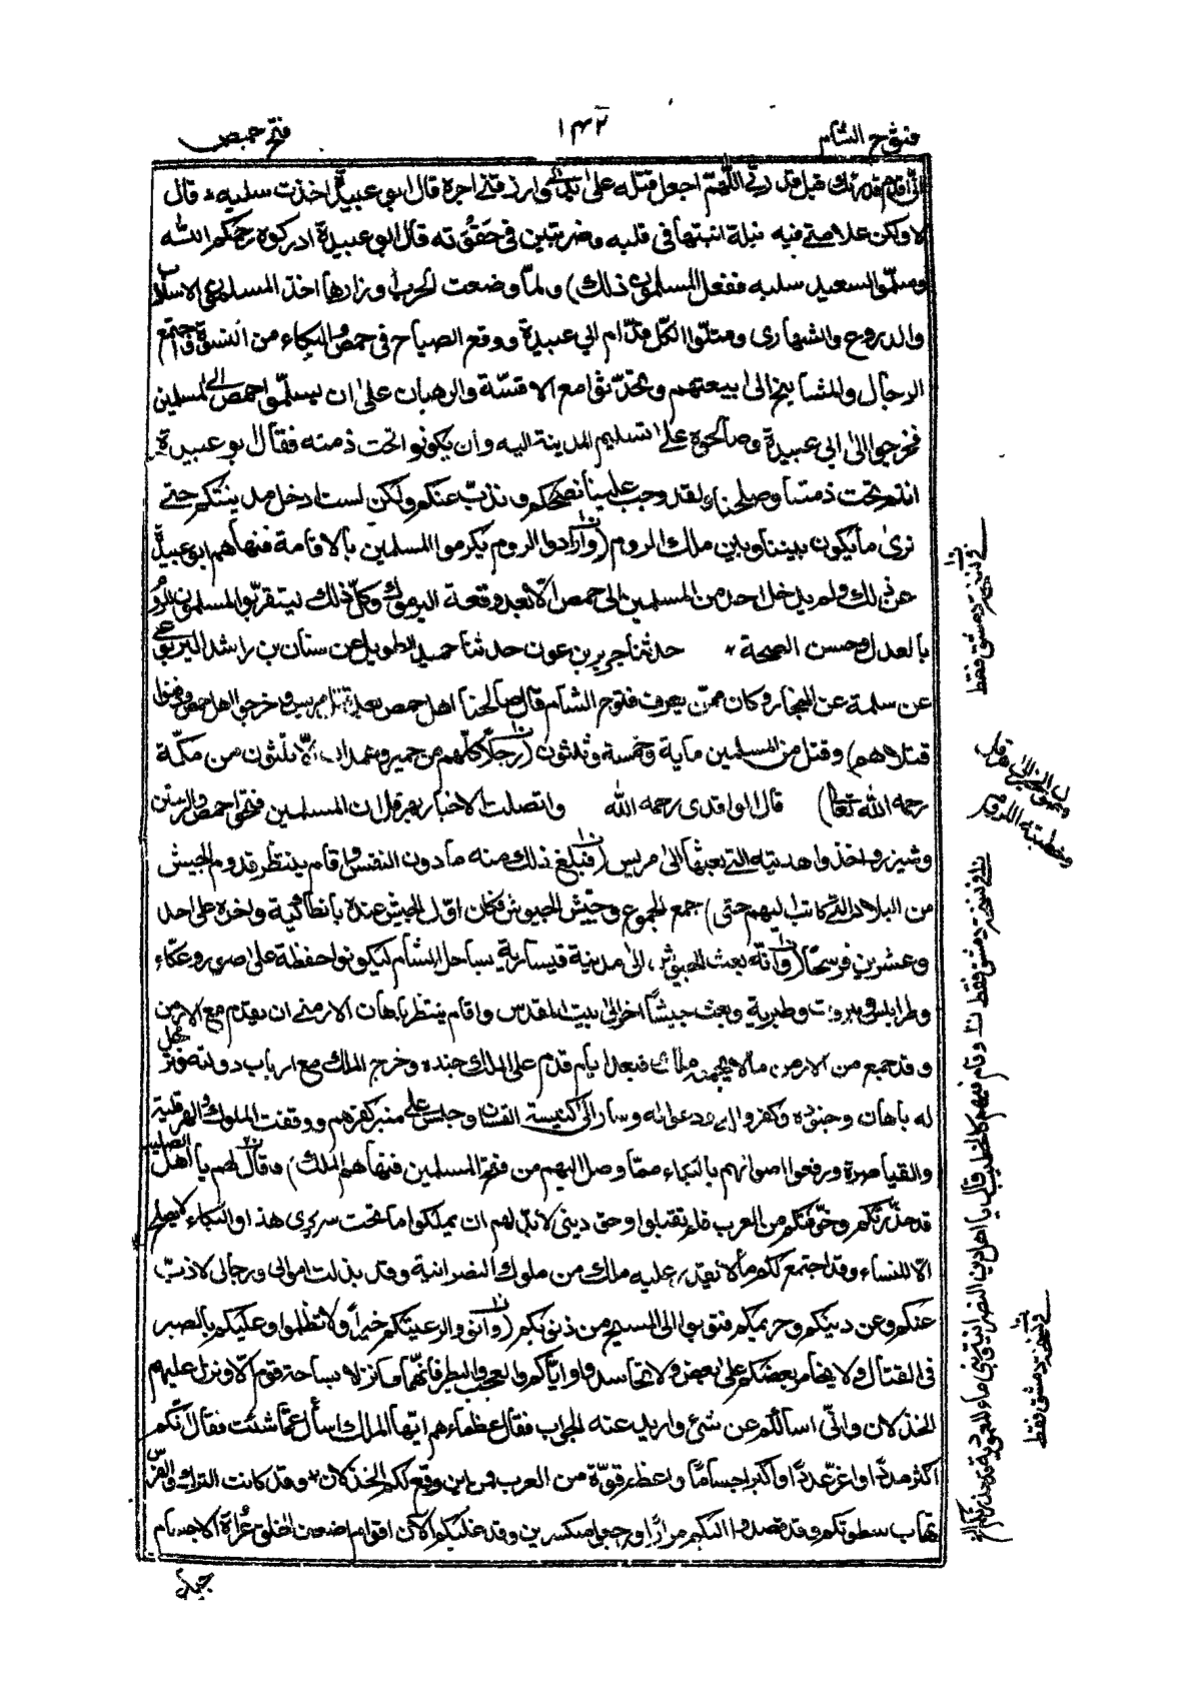 فتوح الشام
١٤٢
فتح حمص
اللهم اجعل قتله على يدي وارزقني اجره قال ابو عبيدة اخذت سلبه قال
لا ولكن علامتي فيه نبلة اثبتها في قلبه وضربتين في حقوته قال ابو عبيدة ادركوه رحمكم الله
وسلموا لسعيد سلبه ففعل المسلمون ذلك) ولما وضعت الحرب اوزارها اخذ المسلمون الاسلاب
والدروع والشهاري ومثلوا الكل قدام ابي عبيدة ووقع الصياح في حمص والبكاء من النسوة فاجتمع
الرجال والمشايخ الى ابيعتهم وتحدثوا مع الاقسّة والرهبان على ان يسلموا حمص الى المسلمين
فخرجوا الى ابي عبيدة وصالحوه على تسليم المدينة اليه وان يكونوا تحت ذمته فقال ابو عبيدة
انتم تحت ذمتنا وصلحنا ولقد وجب علينا نصحكم ونذب عنكم ولكن لست ادخل مدينتكم حتى
نرى ما يكون بيننا وبين ملك الروم (وارادوا الروم يكرموا المسلمين بالاقامة فنهاهم ابو عبيدة
عن ذلك ولم يدخل احد من المسلمين الى حمص الا بعد وقعة اليرموك وكل ذلك ليتقربوا المسلمون للروم
بالعدل وحسن الصحبة * حدثنا جرير بن عون حدثنا حميد الطويل عن سنان بن راشد اليربوعي
عن سلمة عن النجار وكان ممن يعرف فتوح الشام قال صالحنا اهل حمص بعد قتل مريس وخرجوا اهل حمص ودفنوا
قتلاهم) وقتل من المسلمين ماية وخمسة وثلثون (رجلا كلهم من حمير وهمدان الا ثلثون من مكة
رحمه الله تعالى) قال الواقدي رحمه الله واتصلت الاخبار بهرقل ان المسلمين فتحوا حمص والرستن
وشيزر واخذوا هديته التي بعثها الى مريس (فبلغ ذلك منه ما دون النفس واقام ينتظر قدوم الجيش
من البلاد التي كاتب اليهم حتى) جمع الجموع وجيش الجيوش فكان اول الجيش عنده بانطاكية واخره على احد
وعشرين فرسخا (وانه بعث الجيوش الى مدينة قيسارية بساحل الشام ليكونوا حفظة على صور وعكاء
وطرابلس وبيروت وطبرية وبعث جيشا اخر الى بيت المقدس واقام ينتظر باهان الارمني ان يقدم مع الارمن
وقد جمع من الارمن ما لا فبعد ايام قدم على الملك جنده وخرج الملك مع ارباب دولته فترجل
له باهان وجنوده وكفروا له ودعوا له وسار الى كنيسة القسان وجلس على منبر كفرهم ووقفت الملوك والهرقلية
والقياصرة ورفعوا اصواتهم بالبكاء مما وصل اليهم من فتح المسلمين فنهاهم الملك) وقال لهم يا اهل الصليب
قد حذرتكم وخوفتكم من العرب فلم تقبلوا وحق ديني لا بد لهم ان يملكوا ما تحت سريري هذا والبكاء لا يصلح
الا للنساء وقد اجتمع لكم ما لا يقدر عليه ملك من ملوك النصرانية وقد بذلت اموالي ورجالي لاذب
عنكم وعن دينكم وحريمكم فتوبوا الى المسيح من ذنوبكم (وانووا لرعيتكم خيرا ولا تظلموا وعليكم بالصبر
في القتال ولا يخامر بعضكم على بعض ولا تحاسدوا واياكم والعجب والبطر فانهما ما نزلا بساحة قوم الا ونزل عليهم
الخذلان واني اسالكم عن شيء واريد عنه الجواب فقال عظماءهم ايها الملك اسأل عما شئت فقال انكم
اكثر مددا واغزر عددا واكبر اجساما واعظم قوة من العرب فمن اين وقع لكم الخذلان وقد كانت الترك والفرس
تهاب سطوتكم وقد قصدوا اليكم مرارا ورجعوا منكسرين وقد غلبكم الان اقوام اضعف الخلق عراة الاجسام
جياع
في نسخة دمشق فقط
في نسخة دمشق فقط وقام فيهم كالخطيب قال يا اهل دين النصرانية وبني ماء المعمودية قد حذرتكم الخ
في نسخة دمشق فقط